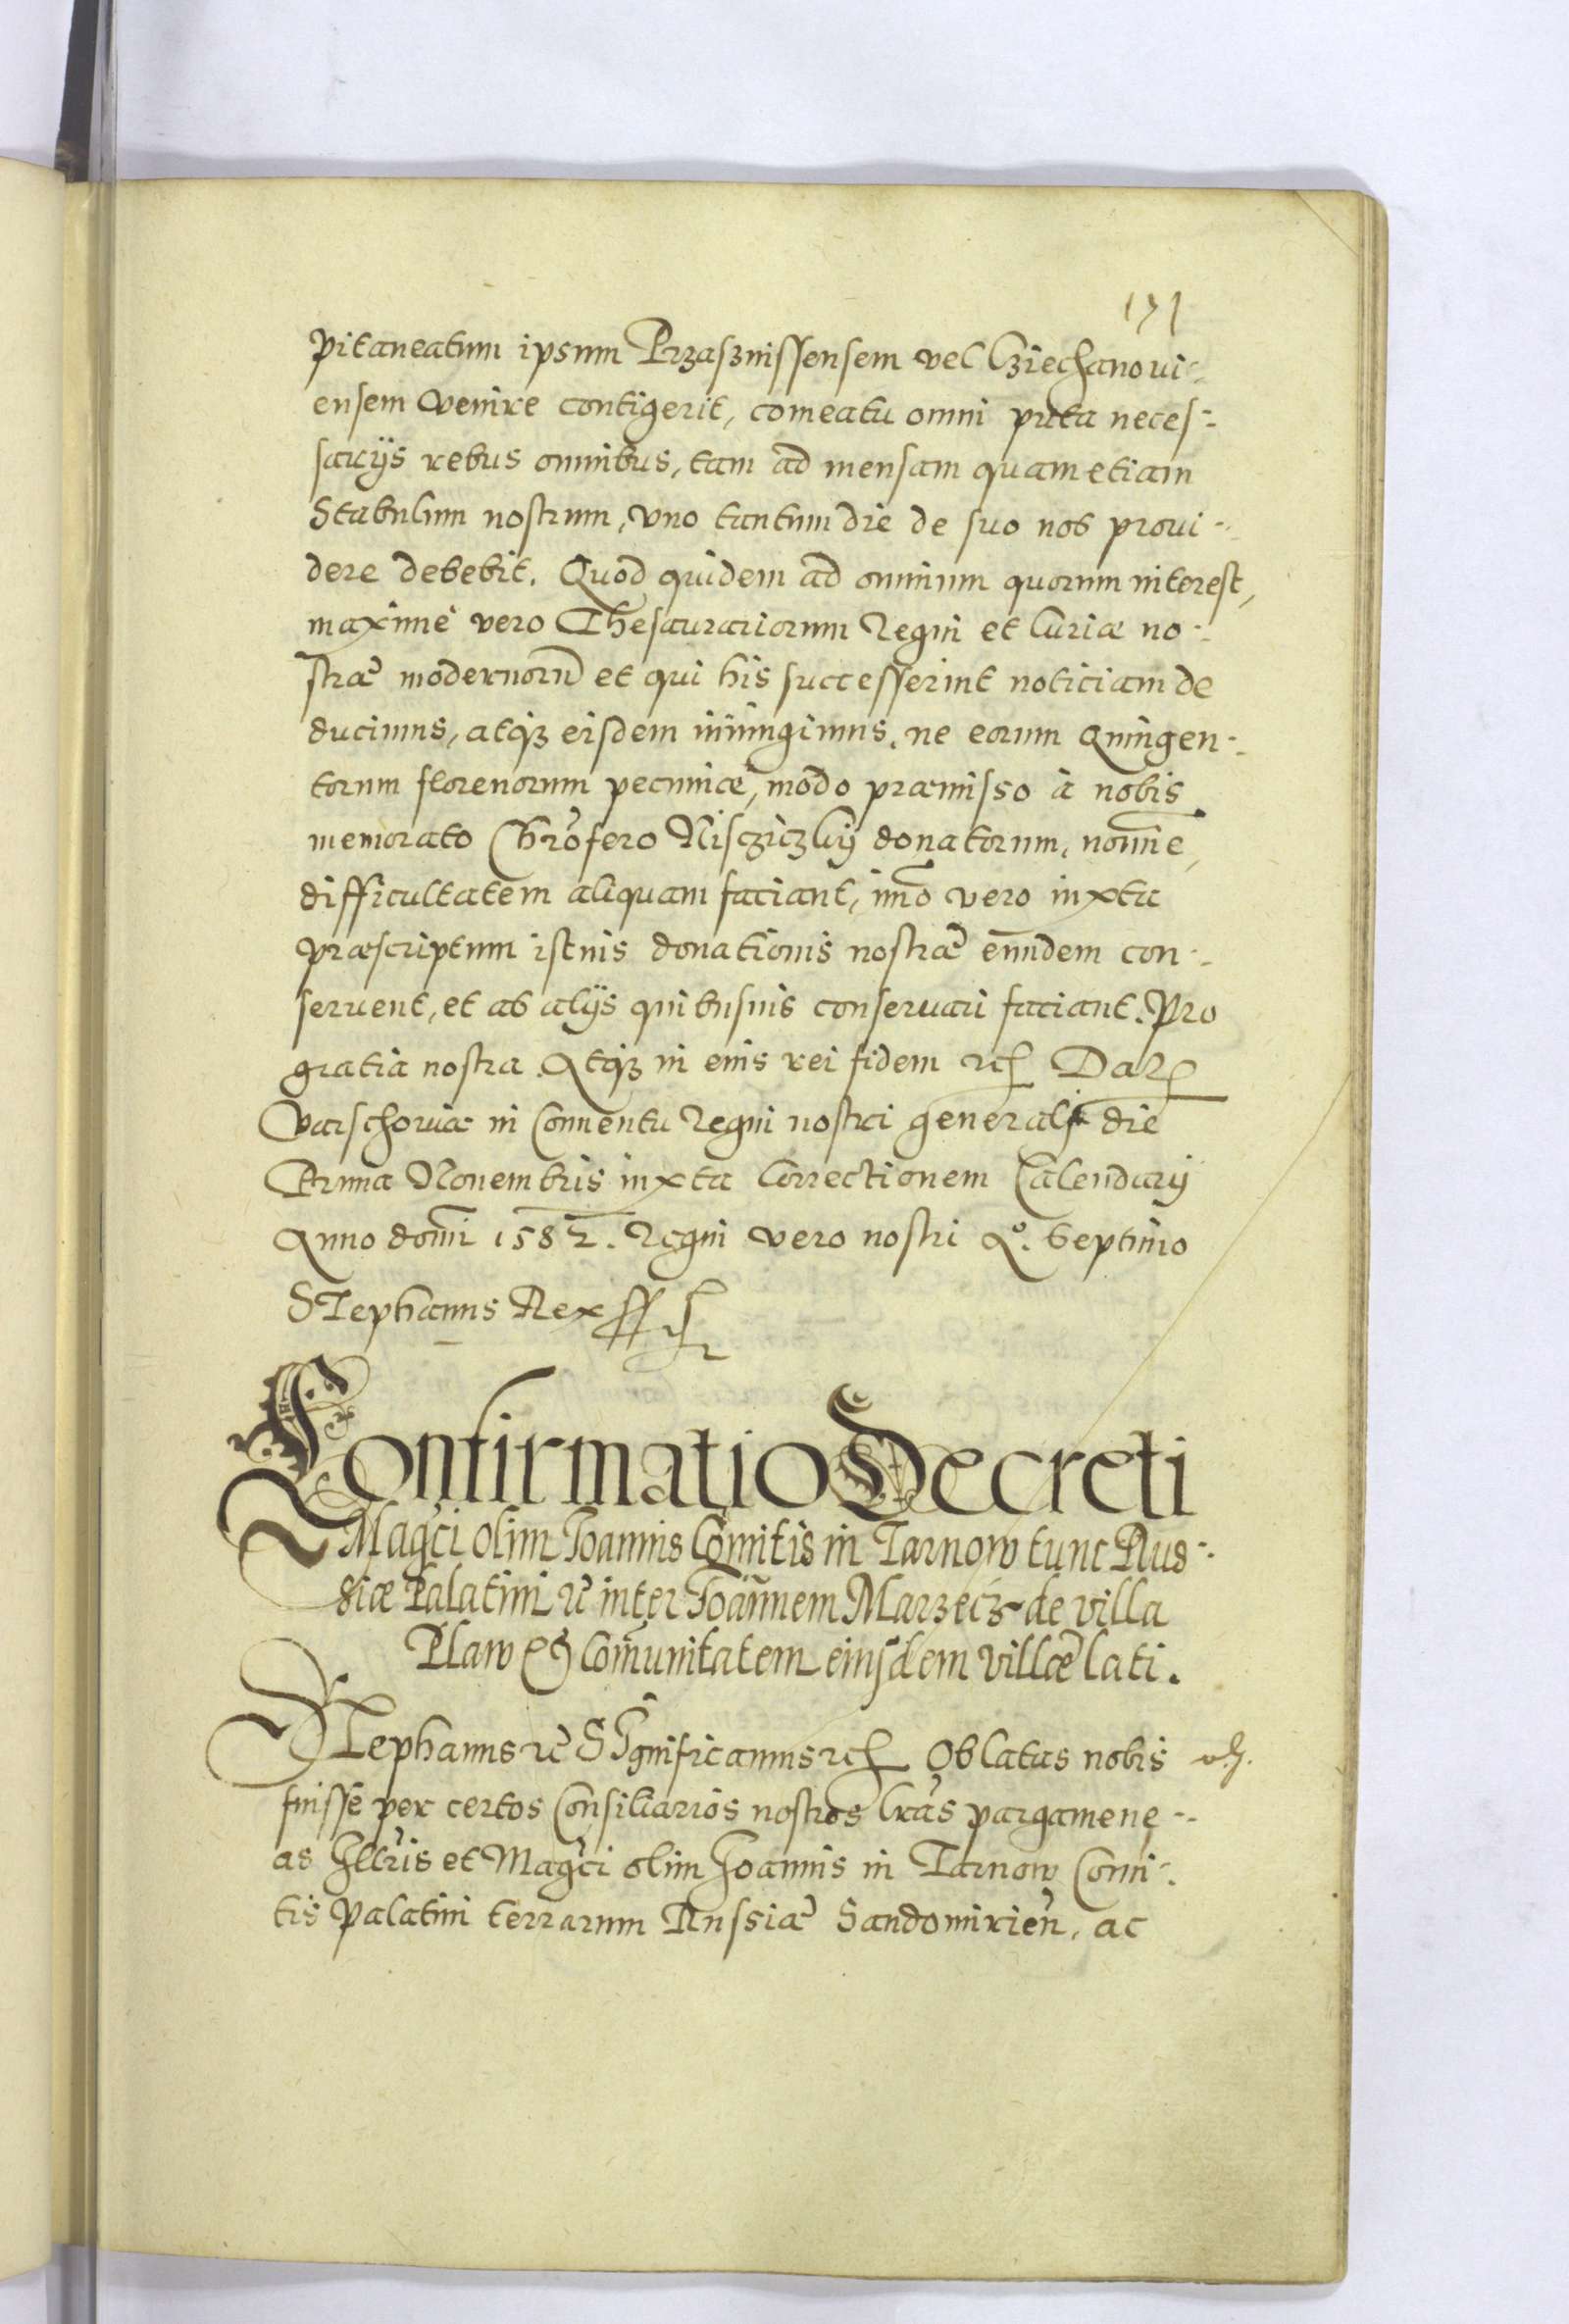 171
pitaneatum ipsum Przasznissensem vel Cziechanovi-
ensem venire contigerit, comeatu omni puta neces-
sarijs rebus omnibus, tam ad mensam quam etiam
Stabulum nostrum, vno tantum die de suo nos provi-
dere debebit. Quod quidem ad omnium quorum interest,
maxime vero Thesaurariorum Regni et Curiæ no-
stræ modernorũ et qui his successerint noticiam de
ducimus, atqꝫ eisdem iniungimus, ne eorum Quingen-
torum florenorum pecuniæ, modo præmisso à nobis
memorato Chrõfero Niscziczky donatorum, nomine
difficultatem aliquam faciant, imo vero iuxta
præscriptum istius donationis nostræ eundem con-
seruent, et ab alijs quibusuis conseruari faciant. Pro
gratia nostra. Atqꝫ in eius rei fidem etc Datt
Varschoviæ in Conuentu Regni nostri generali die
Prima Nouembris iuxta Correctionem Calendarij
Anno domi 1582. Regni vero nostri Aº. Septimo
Stephanus Rex sst
Confirmatio Decreti
Magci olim Joannis Comitis in Tarnow tunc Rus-
siæ Palatini etc inter Joannem Marzecz de villa
Plaw et Comunitatem eiusdem villæ lati.
Stephanus etc Significamus etc Oblatas nobis
fuisse per certos Consiliarios nostros lras pargamene-
as Illris et Magci olim Joannis in Tarnow Comi-
tis Palatini terrarum Russiæ Sandomirien, ac